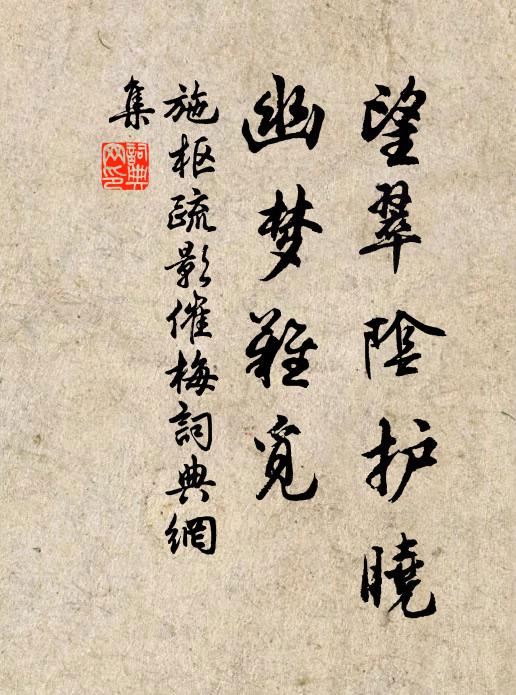 望翠阴护晓
幽梦难觅
施枢疏影催梅詞典網
集
詞典
网印